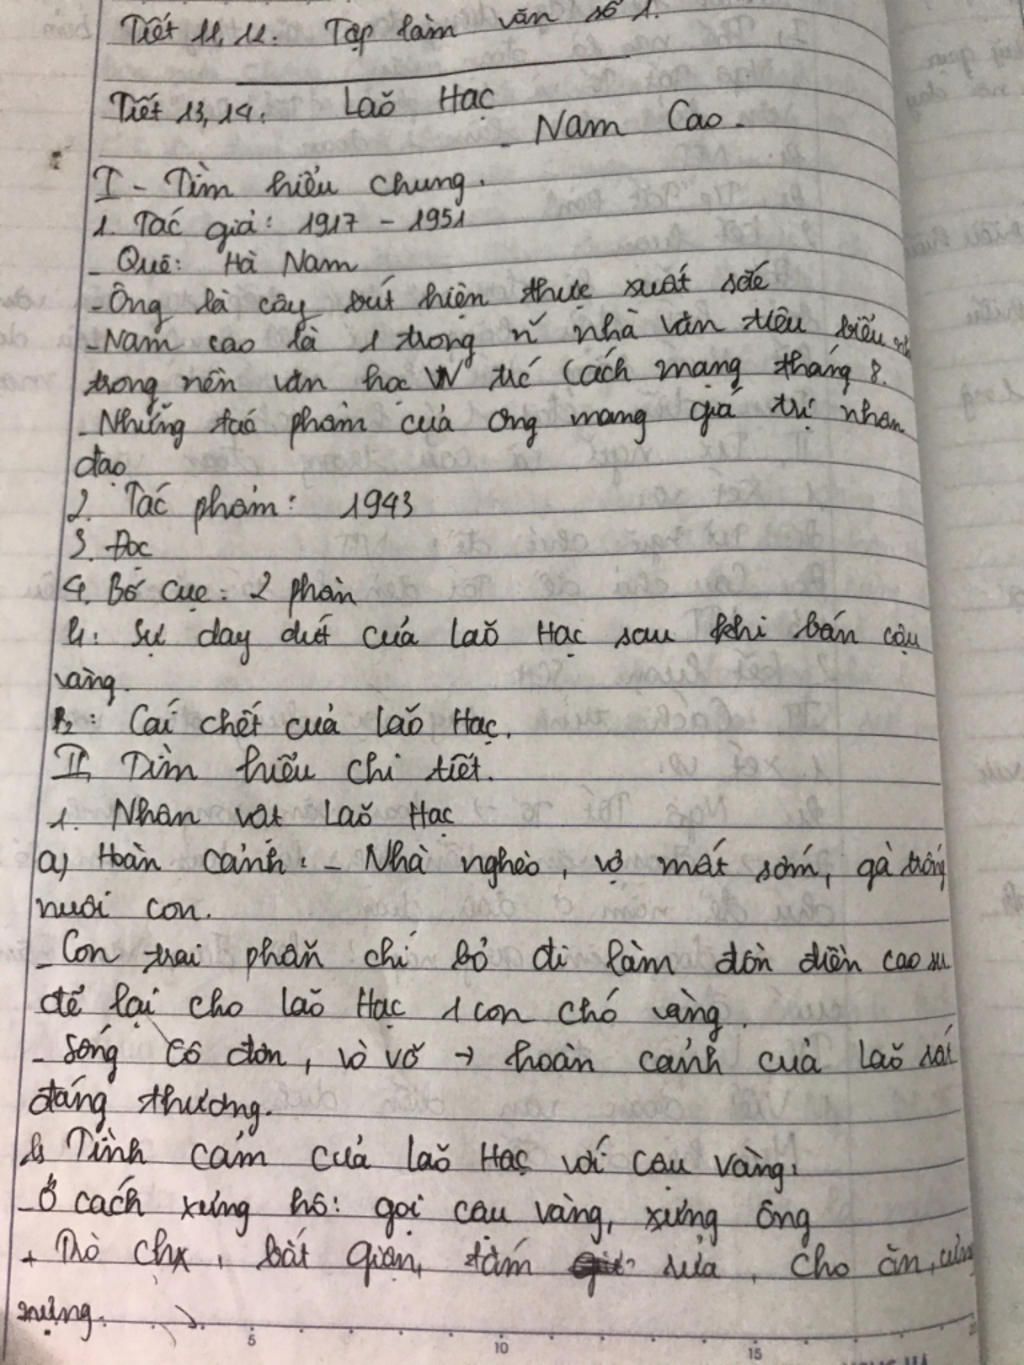 Tiết 11,12. Tập làm văn số 1.
Tiết 13,14. Lão Hạc
- Nam Cao -
I - Tìm hiểu chung.
1. Tác giả: 1917 - 1951
- Quê: Hà Nam
- Ông là cây bút hiện thực xuất sắc
- Nam cao là 1 trong n~ nhà văn tiêu biểu
trong nền văn học VN trc Cách mạng tháng 8.
- Những tác phẩm của ông mang giá trị nhân
đạo
2. Tác phẩm: 1943
3. Đọc
4. Bố cục: 2 phần
P1: Sự day dứt của Lão Hạc sau khi bán cậu
vàng.
P2: Cái chết của Lão Hạc.
II, Tìm hiểu chi tiết.
1. Nhân vật Lão Hạc
a) Hoàn cảnh: - Nhà nghèo, vợ mất sớm, gà trống
nuôi con.
- Con trai phẫn chí bỏ đi làm đồn điền cao su
để lại cho lão Hạc 1 con chó vàng.
- Sống cô đơn, vò võ → hoàn cảnh của lão rất
đáng thương.
b, Tình cảm của lão Hạc với cậu vàng:
- Ở cách xưng hô: gọi cậu vàng, xưng ông
+ Trò chx, bắt giận, tắm rửa, cho ăn, cưng
nựng.
5 10 15